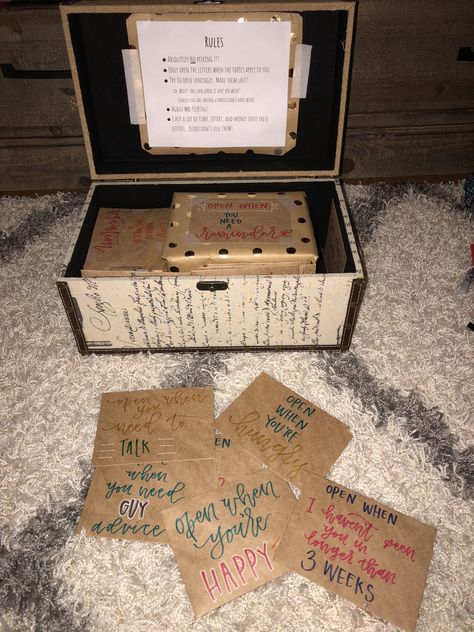 RULES
ABSOLUTELY NO PEEKING !!!
ONLY OPEN THE LETTERS WHEN THE TOPICS APPLY TO YOU
TRY TO OPEN SPARINGLY. MAKE THEM LAST!
MOST YOU CAN OPEN IS ONE PER WEEK!
(UNLESS YOU ARE HAVING A PARTICULARLY HARD WEEK)
AGAIN NO PEEKING!
I PUT A LOT OF TIME, EFFORT, AND MONEY INTO THESE
LETTERS. PLEASE DON'T LOSE THEM!
OPEN WHEN
YOU NEED A
reminder
open when
you
need to
TALK
OPEN
WHEN
YOU'RE
hungry
when
you need
GUY
advice
open when
you're
HAPPY
OPEN WHEN
I haven't seen
you in
longer than
3 WEEKS